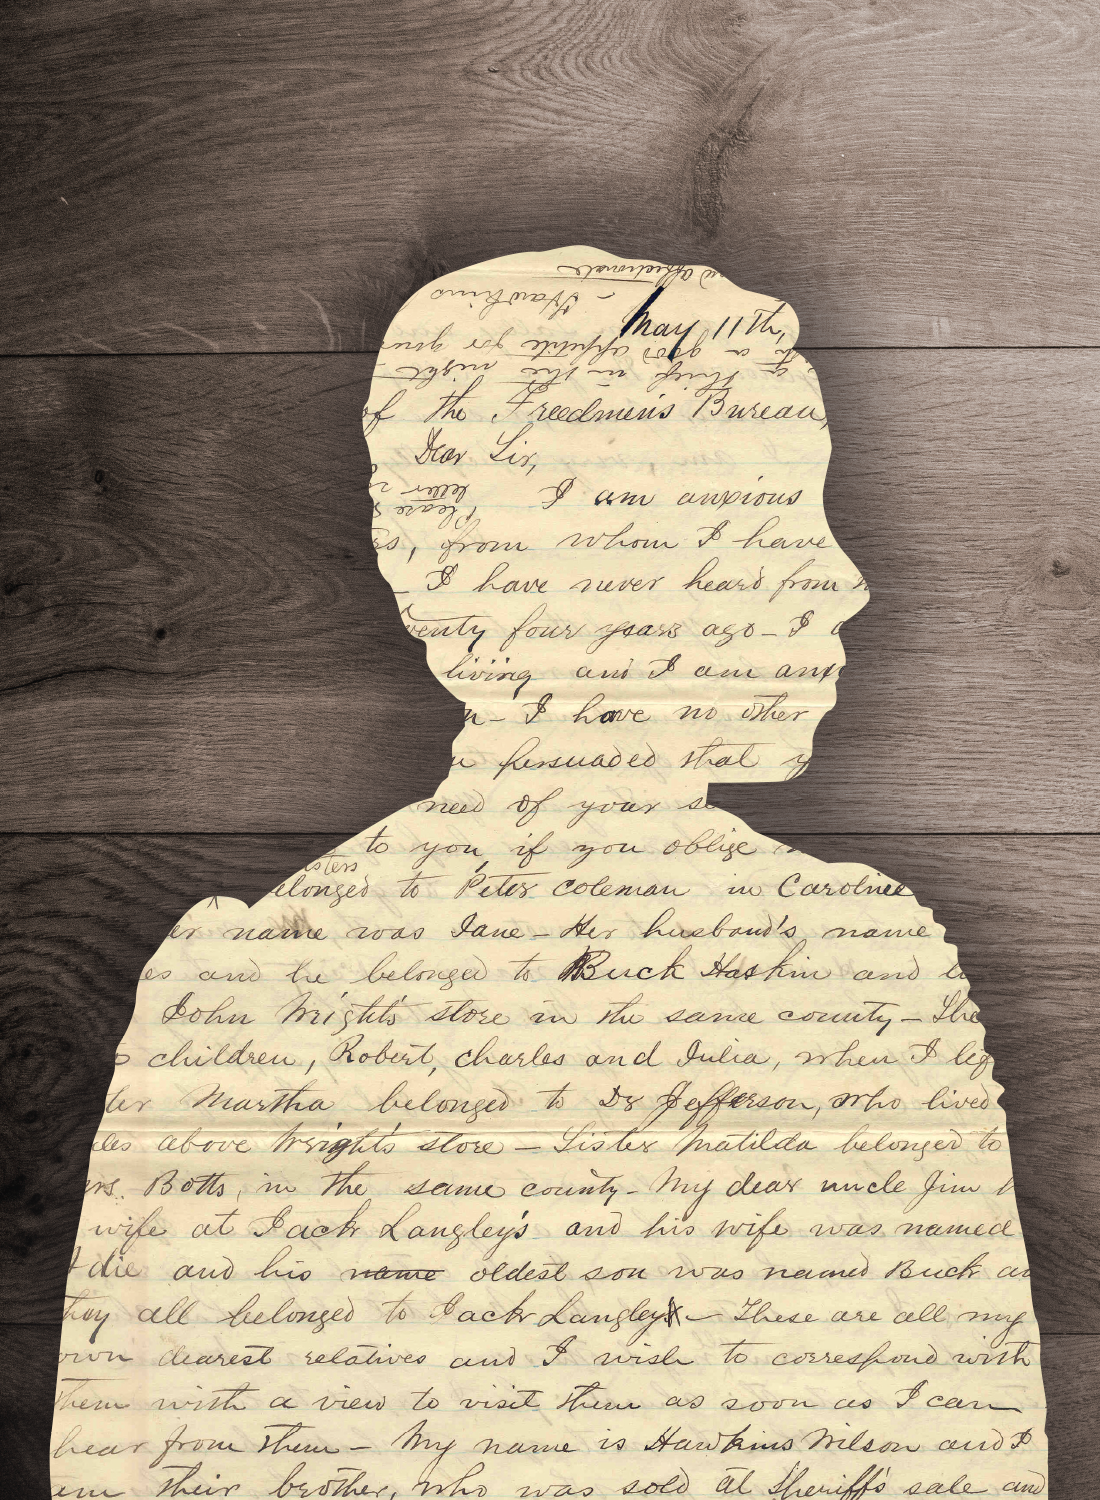 and affectionate
- Hawkins
May 11th,
with a good appetite for your
a thief in the night -
of the Freedmen's Bureau,
Dear Sir,
letter
Please
I am anxious
rs, from whom I have
- I have never heard from
venty four years ago - I
living and I am anx
m - I have no other
persuaded that y
need of your s
to you if you oblige
isters
elonged to Peter coleman in Caroline
er name was Jane - Her husband's name
es and he belonged to Buck Haskin and li
John Wright's store in the same county - She
children, Robert, charles and Julia, when I lef
ter Martha belonged to Dr Jefferson, who lived
les above Wright's store - Sister Matilda belonged to
rs. Botts, in the same county - My dear uncle Jim
wife at Jack Langley's and his wife was named
Adie and his name oldest son was named Buck an
they all belonged to Jack Langley - These are all my
own dearest relatives and I wish to correspond with
them with a view to visit them as soon as I can
hear from them - My name is Hawkins Wilson and I
am their brother, who was sold at Sheriff's sale and